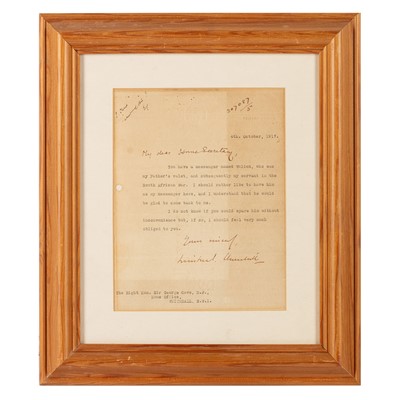 307887
/5
4th. October, 1917.
My dear Home Secretary
You have a messenger named Walden, who was
my father's valet, and subsequently my servant in the
South African War. I should rather like to have him
as my messenger here, and I understand that he would
be glad to come back to me.
I do not know if you could spare him without
inconvenience but, if so, I should feel very much
obliged to you.
Yours
The Right Hon. Sir George Cave, K.C.,
Home Office,
Whitehall, S.W.1.